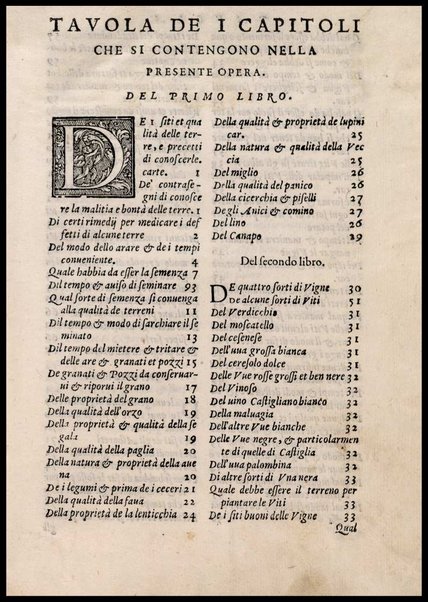 TAVOLA DE I CAPITOLI
CHE SI CONTENGONO NELLA
PRESENTE OPERA.
DEL PRIMO LIBRO.
DE i siti et qua
lità delle ter-
re, e precetti
di conoscerle.
carte. 1
De' contrase-
gni di conosce
re la malitia e bontà delle terre. 1
Di certi rimedij per medicare i def
fetti di alcune terre 2
Del modo dello arare & de i tempi
conueniente. 4
Quale habbia da esser la semenza 7
Dil tempo & auiso di seminare 93
Qual sorte di semenza si conuenga
alla qualità de terreni 11
Dil tempo & modo di sarchiare il se
minato 13
Dil tempo del mietere & tritare &
delle are & granati et pozzi 15
De granati & Pozzi da conseruar-
ui & riporui il grano 17
Delle proprietà del grano 18
Della qualità dell'orzo 19
Della proprietà & qualità della se
gala 19
Della qualità della paglia 20
Della natura & proprietà della aue
na 20
De i legumi & prima de i ceceri 21
Della qualità della faua 22
Della proprietà de la lenticchia 24
Della qualità & proprietà de lupini
car. 25
Della natura & qualità della Vec
cia 25
Del miglio 26
Della qualità del panico 26
Della cicerchia & piselli 27
Degli Anici & comino 27
Del lino 26
Del Canapo 29
Del secondo libro.
DE quattro sorti di Vigne 30
De alcune sorti di Viti 51
Del Verdicchio 31
Del moscatello 31
Del cesenese 31
Dell'uua grossa bianca 31
Del ceresolo dolce 31
Delle Vue rosse grossi et ben nere 32
Del Vinoso 32
Del uino Castigliano bianco 32
Della maluagia 32
Dell'altre Vue bianche 32
Delle Vue negre, & particolarmen
te di quelle di Castiglia 32
Dell'uua palombina 32
Di altre sorti di Vua nera 33
Quale debbe essere il terreno per
piantare le Viti 33
De i siti buoni delle Vigne 33
Qual